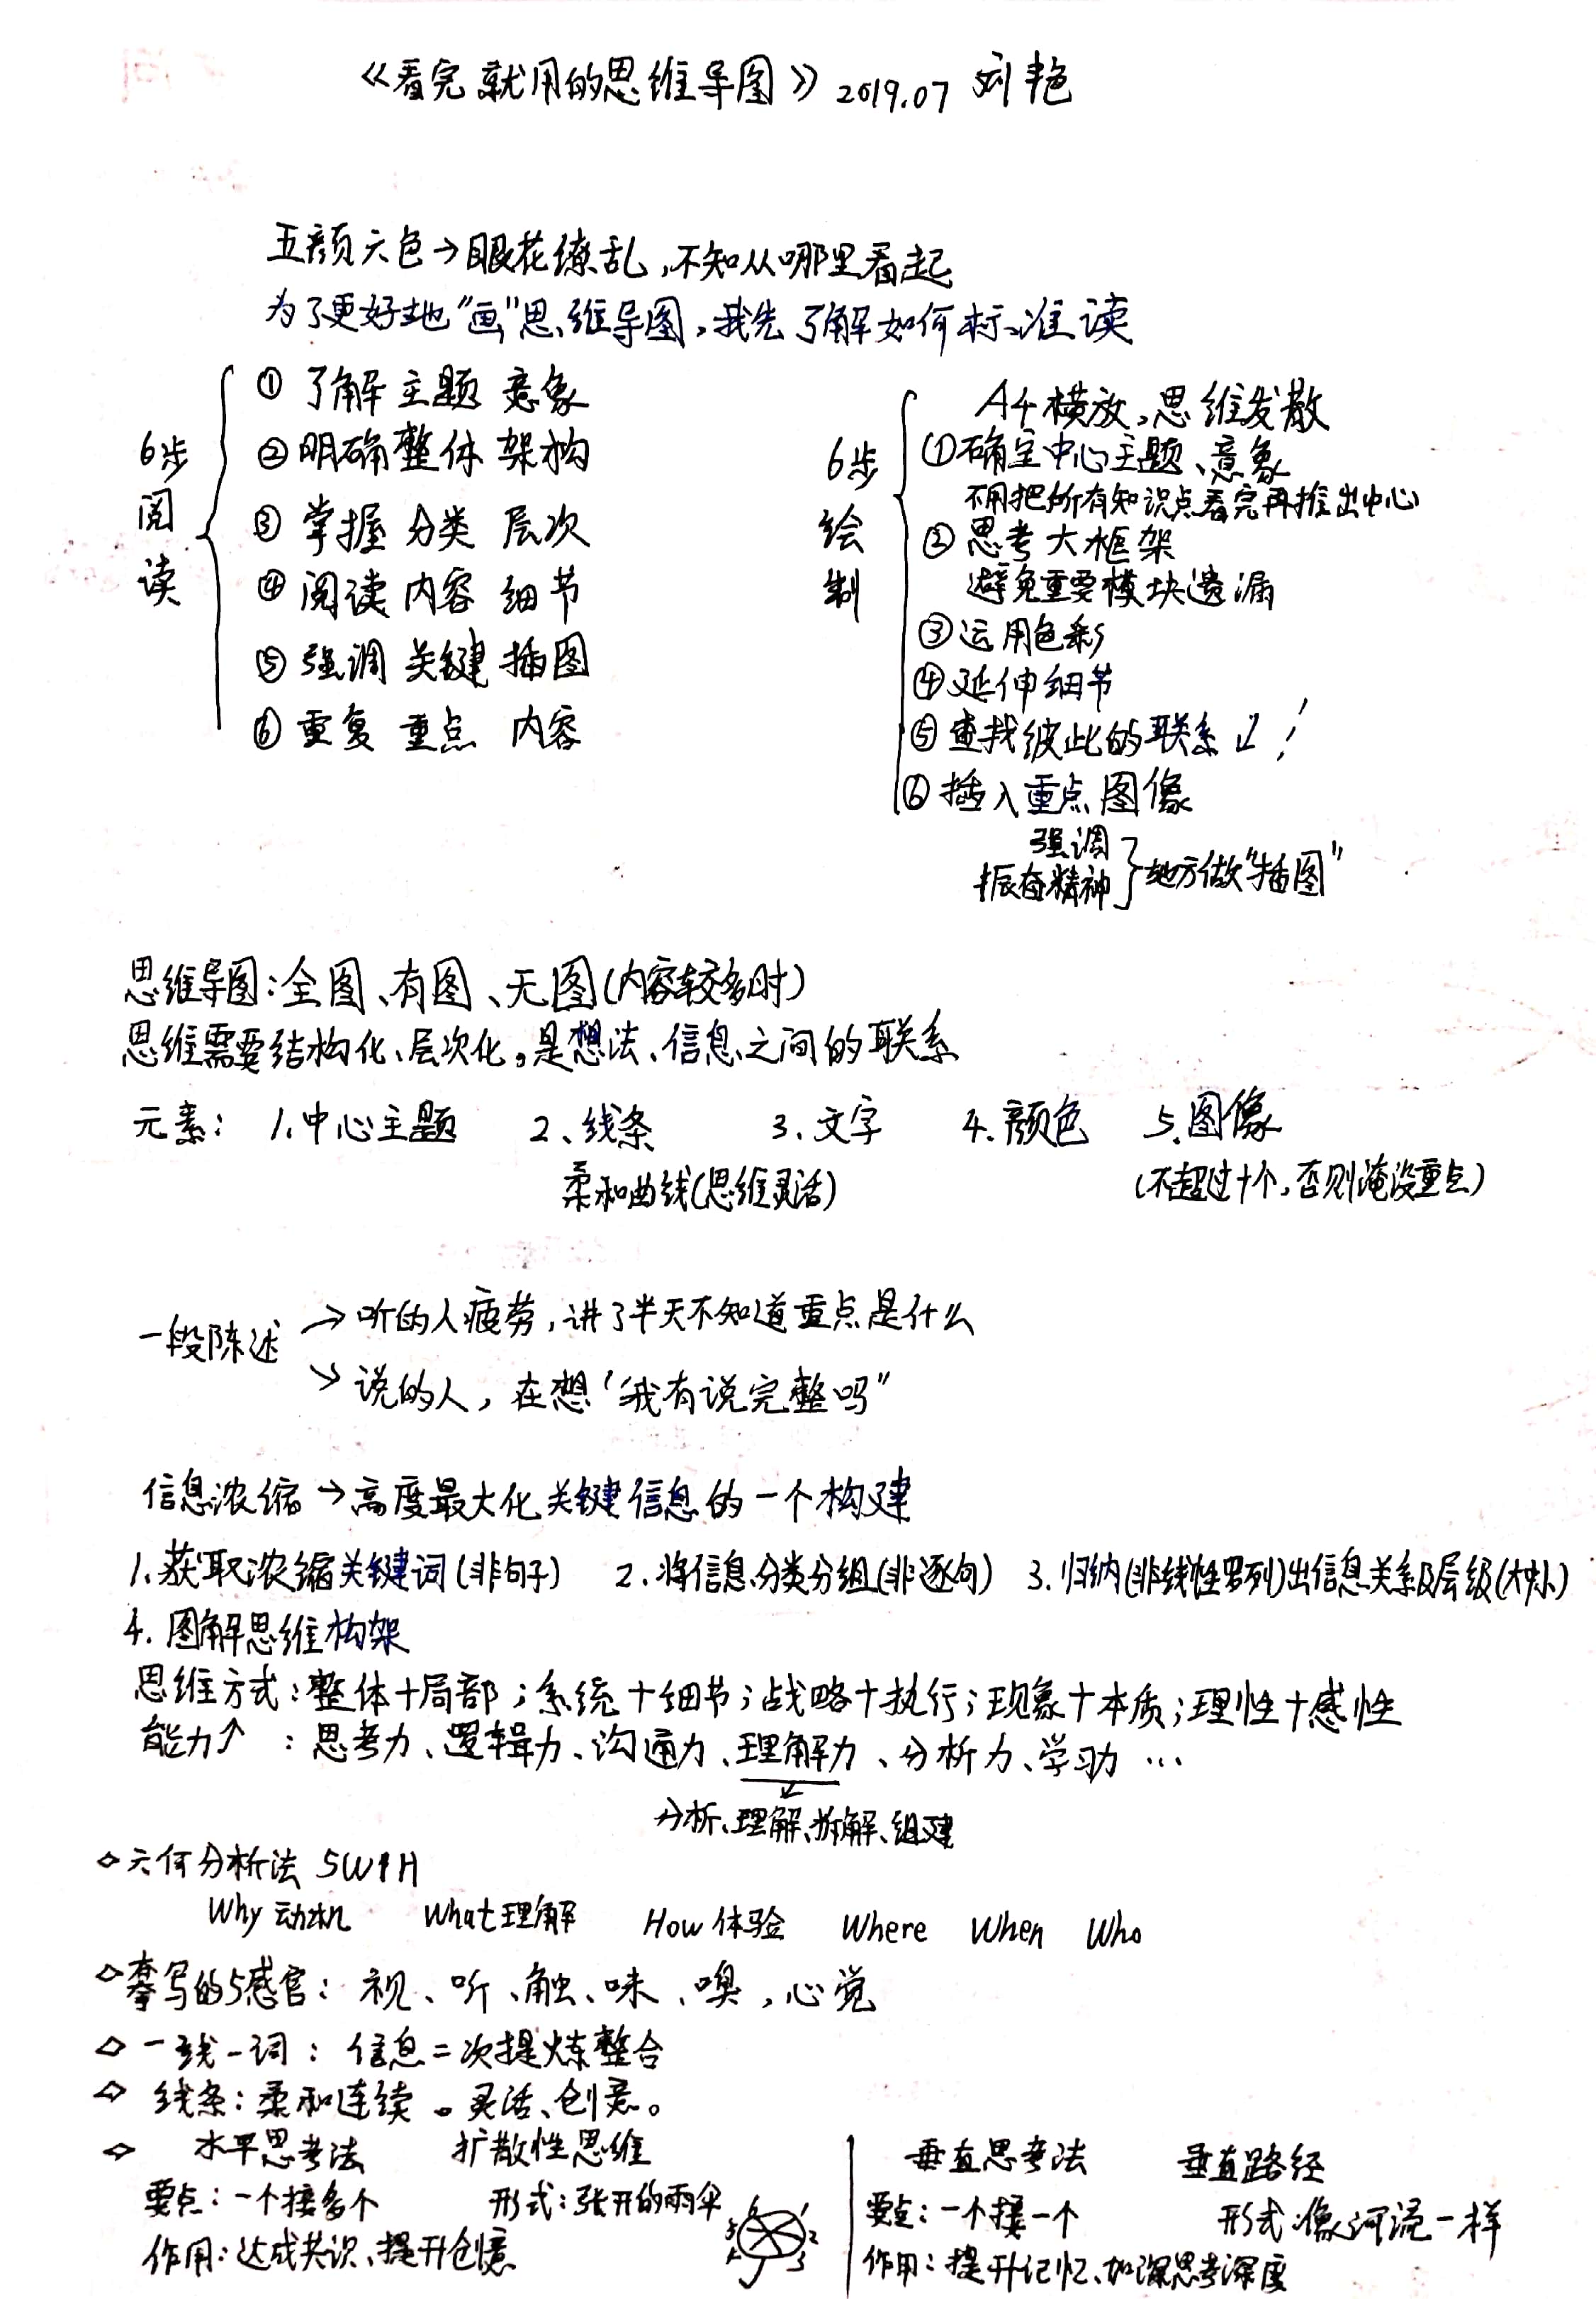 《看完就用的思维导图》2019.07 刘艳
五颜六色→眼花缭乱,不知从哪里看起
为了更好地"画"思维导图,我先了解如何标准读
6步阅读
① 了解主题 意象
② 明确整体 架构
③ 掌握 分类 层次
④ 阅读 内容 细节
⑤ 强调 关键 插图
⑥ 重复 重点 内容
6步绘制
A4横放,思维发散
①确定中心主题、意象
不用把所有知识点看完再推出中心
② 思考大框架
避免重要模块遗漏
③运用色彩
④延伸细节
⑤ 查找彼此的联系↙!
⑥ 插入重点图像
强调
振奋精神
}地方做"插图"
思维导图:全图、有图、无图(内容较多时)
思维需要结构化、层次化。是想法、信息之间的联系
元素: 1.中心主题 2、线条 3、文字 4.颜色 5.图像
柔和曲线(思维灵活) (不超过十个,否则淹没重点)
一段陈述
→听的人疲劳,讲了半天不知道重点是什么
↘说的人,在想"我有说完整吗"
信息浓缩→高度最大化关键信息的一个构建
1.获取浓缩关键词(非句子) 2.将信息分类分组(非逐句) 3.归纳(非线性罗列)出信息关系及层级(大中小)
4.图解思维构架
思维方式:整体+局部;系统+细节;战略+执行;现象+本质;理性+感性
能力↑ :思考力、逻辑力、沟通力、理解力、分析力、学习力…
分析、理解、拆解、组建
◇六何分析法 5W1H
Why动机 What理解 How体验 Where When Who
◇摹写的5感官: 视、听、触、味、嗅,心觉
◇一线一词: 信息二次提炼整合
◇ 线条:柔和连续。灵活、创意。
◇ 水平思考法 扩散性思维
要点:一个接多个 形式:张开的雨伞
作用:达成共识、提升创意
6 1 2 3 4 5
垂直思考法 垂直路径
要点:一个接一个 形式:像河流一样
作用:提升记忆、加深思考深度